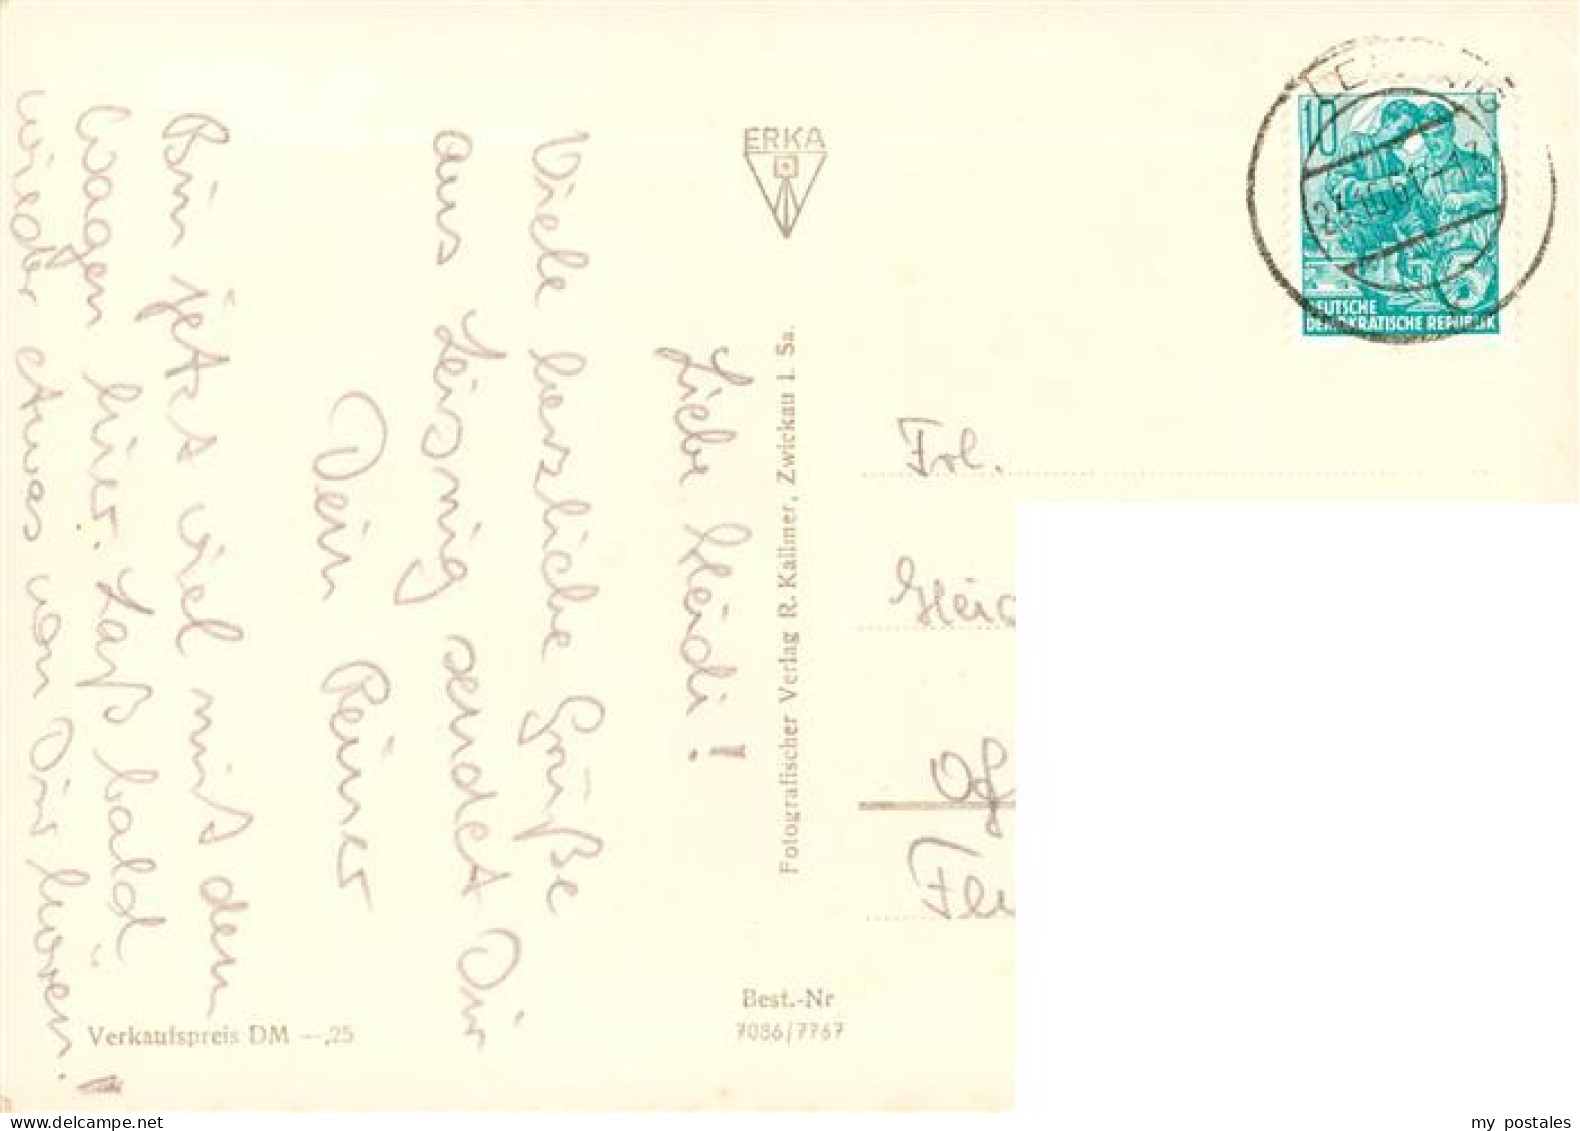 Liebe Heidi!
Viele herzliche Grüße
aus Leisnig sendet Dir
Dein Reiner
Bin jetzt viel mit dem
Wagen hier. Laß bald
wieder etwas von Dir hören!
ERKA
Fotografischer Verlag R. Kallmer, Zwickau i. Sa.
Best.-Nr
7086/7767
Verkaufspreis DM —,25
10
DEUTSCHE
DEMOKRATISCHE REPUBLIK
Frl.
my postales